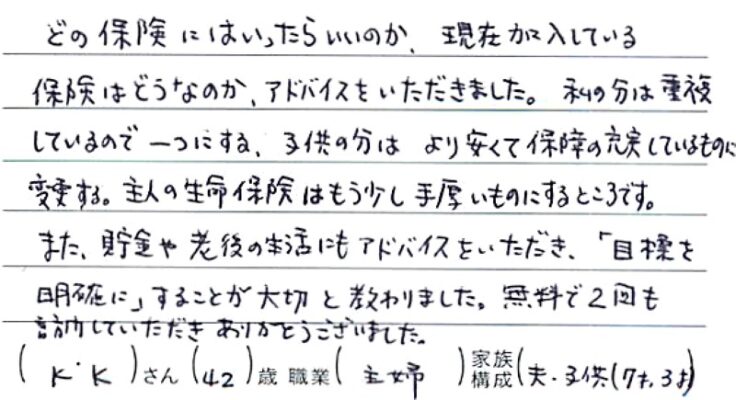 どの保険にはいったらいいのか、現在加入している
保険はどうなのか、アドバイスをいただきました。私の分は重複
しているので一つにする、子供の分は より安くて保障の充実しているものに
変更する。主人の生命保険はもう少し手厚いものにするところです。
また、貯金や老後の生活にもアドバイスをいただき、「目標を
明確に」することが大切と教わりました。無料で2回も
訪問していただきありがとうございました。
( K・K )さん (42)歳 職業( 主婦 )家族構成(夫・子供(7才,3才)